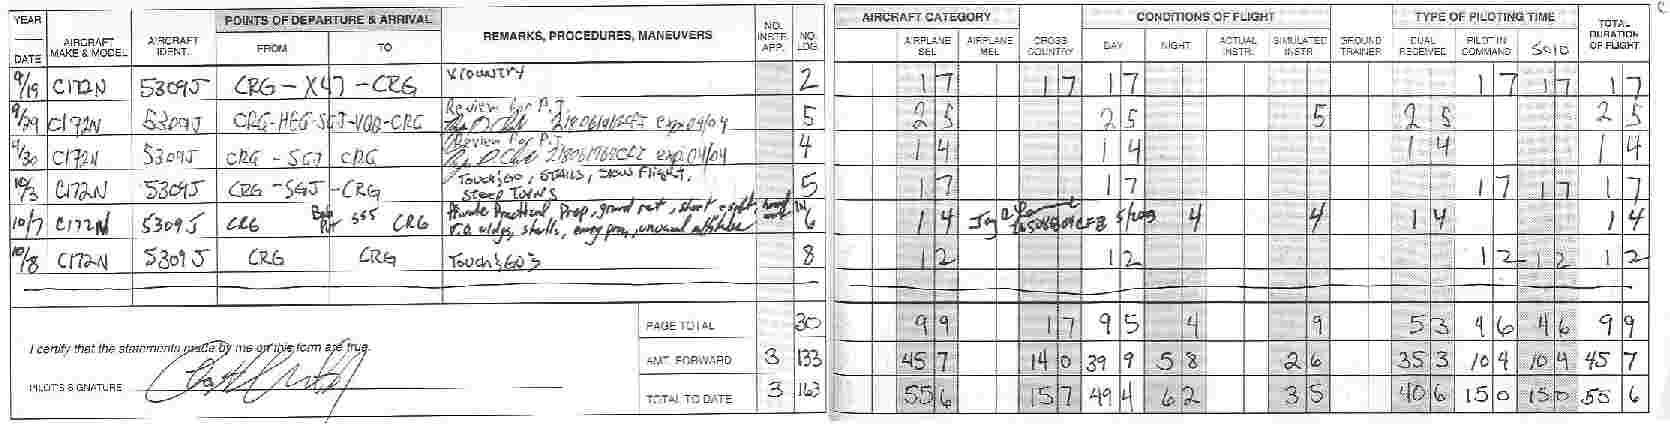 YEAR
DATE
AIRCRAFT MAKE & MODEL
AIRCRAFT IDENT.
POINTS OF DEPARTURE & ARRIVAL
FROM TO
REMARKS, PROCEDURES, MANEUVERS
NO. INSTR. APP.
NO. LDG.
AIRCRAFT CATEGORY
AIRPLANE SEL
AIRPLANE MEL
CROSS COUNTRY
CONDITIONS OF FLIGHT
DAY NIGHT ACTUAL INSTR. SIMULATED INSTR.
GROUND TRAINER
TYPE OF PILOTING TIME
DUAL RECEIVED PILOT IN COMMAND Solo
TOTAL DURATION OF FLIGHT
9/19 C172N 5309J CRG - X47 - CRG XCOUNTRY 2 1 7 1 7 1 7 1 7 1 7 1 7
9/29 C172N 5309J CRG-HEG-SGJ-VQQ-CRG Review for P.T. exp. 04/04 5 2 5 2 5 5 2 5 2 5
9/30 C172N 5309J CRG - SGJ CRG Review for P.T. exp. 04/04 4 1 4 1 4 1 4 1 4
10/3 C172N 5309J CRG - SGJ - CRG Touch & GO, STALLS, Slow Flight,
STEEP TURNS 5 1 7 1 7 1 7 1 7 1 7
10/7 C172N 5309J CRG CRG Private Practical Prep, ground ref, short & soft,
stalls, emerg pro, unusual attitudes 6 1 4 4 4 1 4 1 4
10/8 C172N 5309J CRG CRG Touch & GO's 8 1 2 1 2 1 2 1 2 1 2
PAGE TOTAL 30 9 9 1 7 9 5 4 9 5 3 4 6 4 6 9 9
I certify that the statements made by me on this form are true.
AMT. FORWARD 3 133 45 7 14 0 39 9 5 8 2 6 35 3 10 4 10 4 45 7
PILOT'S SIGNATURE
TOTAL TO DATE 3 163 55 6 15 7 49 4 6 2 3 5 40 6 15 0 15 0 55 6